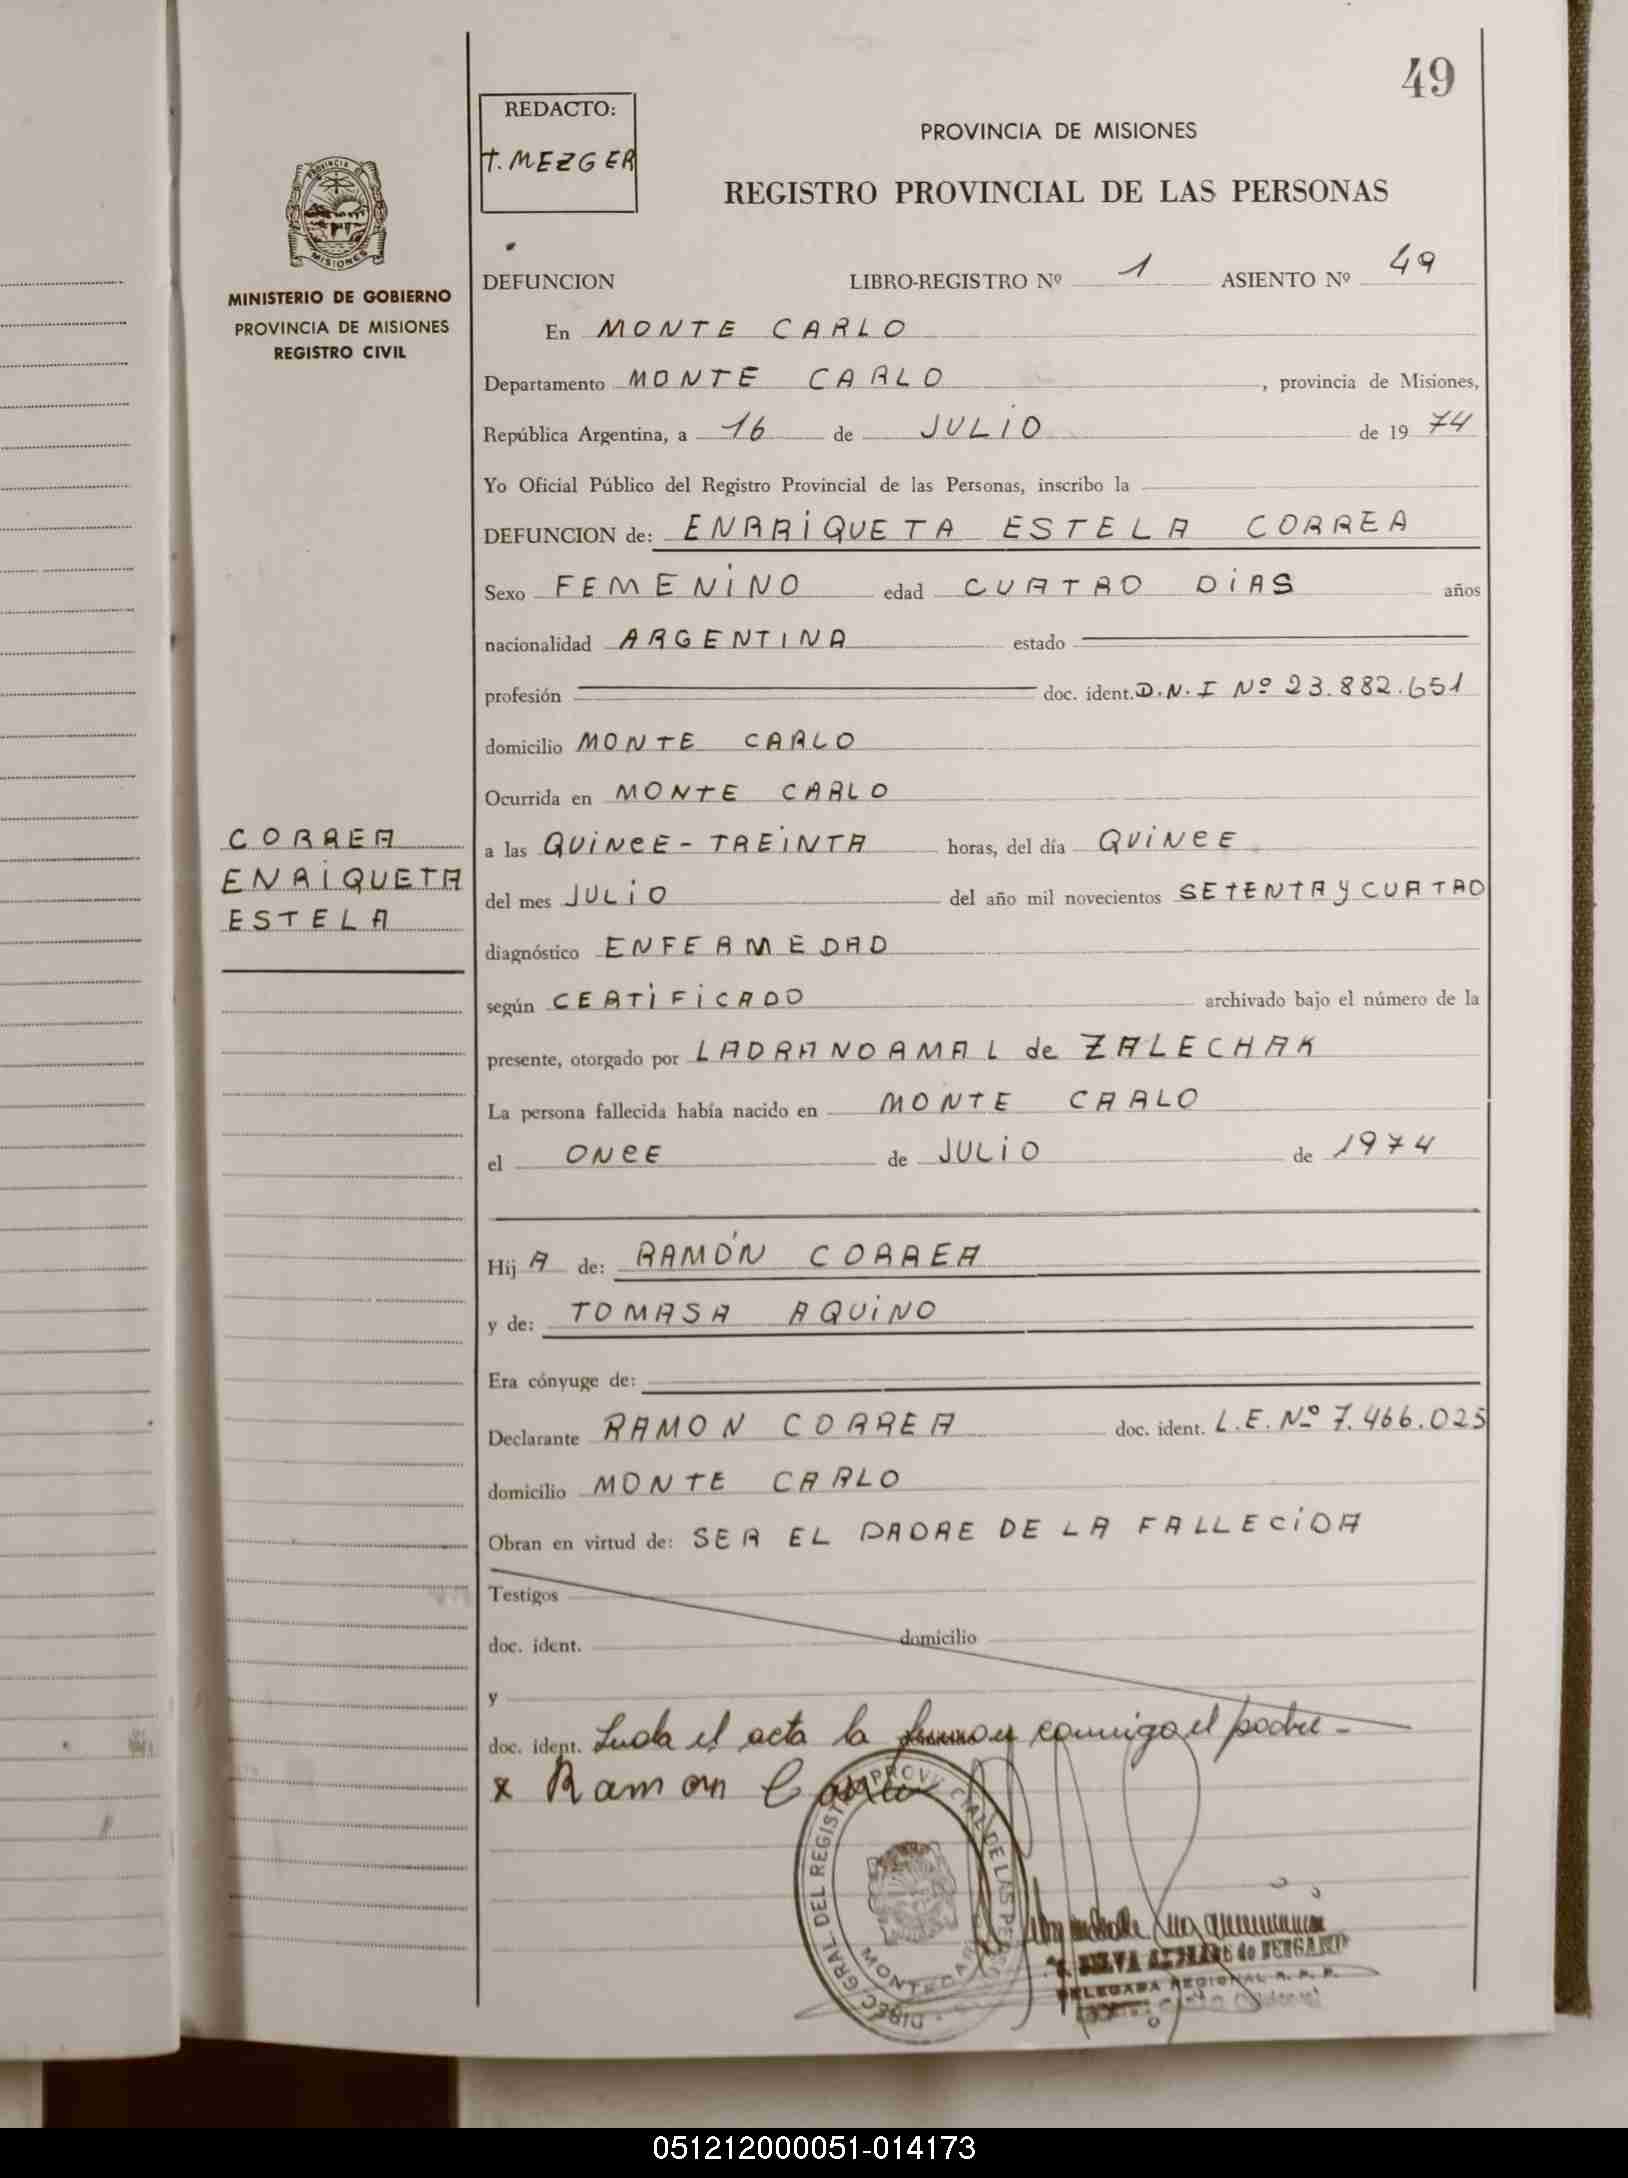 49
REDACTO:
T. MEZGER
PROVINCIA DE MISIONES
REGISTRO PROVINCIAL DE LAS PERSONAS
PROVINCIA
MISIONES
MINISTERIO DE GOBIERNO
PROVINCIA DE MISIONES
REGISTRO CIVIL
DEFUNCION LIBRO-REGISTRO Nº 1 ASIENTO Nº 49
En MONTE CARLO
Departamento MONTE CARLO , provincia de Misiones,
República Argentina, a 16 de JULIO de 19 74
Yo Oficial Público del Registro Provincial de las Personas, inscribo la
DEFUNCION de: ENRRIQUETA ESTELA CORREA
Sexo FEMENINO edad CUATRO DIAS años
nacionalidad ARGENTINA estado
profesión doc. ident. D.N.I Nº 23.882.651
domicilio MONTE CARLO
Ocurrida en MONTE CARLO
CORREA
ENRIQUETA
ESTELA
a las QUINCE - TREINTA horas, del día QUINCE
del mes JULIO del año mil novecientos SETENTA Y CUATRO
diagnóstico ENFERMEDAD
según CERTIFICADO archivado bajo el número de la
presente, otorgado por LADRANORMAL de ZALECHAK
La persona fallecida había nacido en MONTE CARLO
el ONCE de JULIO de 1974
Hij A de: RAMÓN CORREA
y de: TOMASA AQUINO
Era cónyuge de:
Declarante RAMON CORREA doc. ident. L.E. Nº 7.466.025
domicilio MONTE CARLO
Obran en virtud de: SER EL PADRE DE LA FALLECIDA
Testigos
doc. ident. domicilio
y
doc. ident. Leida el acta la conmigo el padre -
x Ramon Correa
DIREC. GRAL DEL REGISTRO PROVINCIAL DE LAS PERSONAS
MONTECARLO
DELEGADA REGIONAL R. P. P.
051212000051-014173